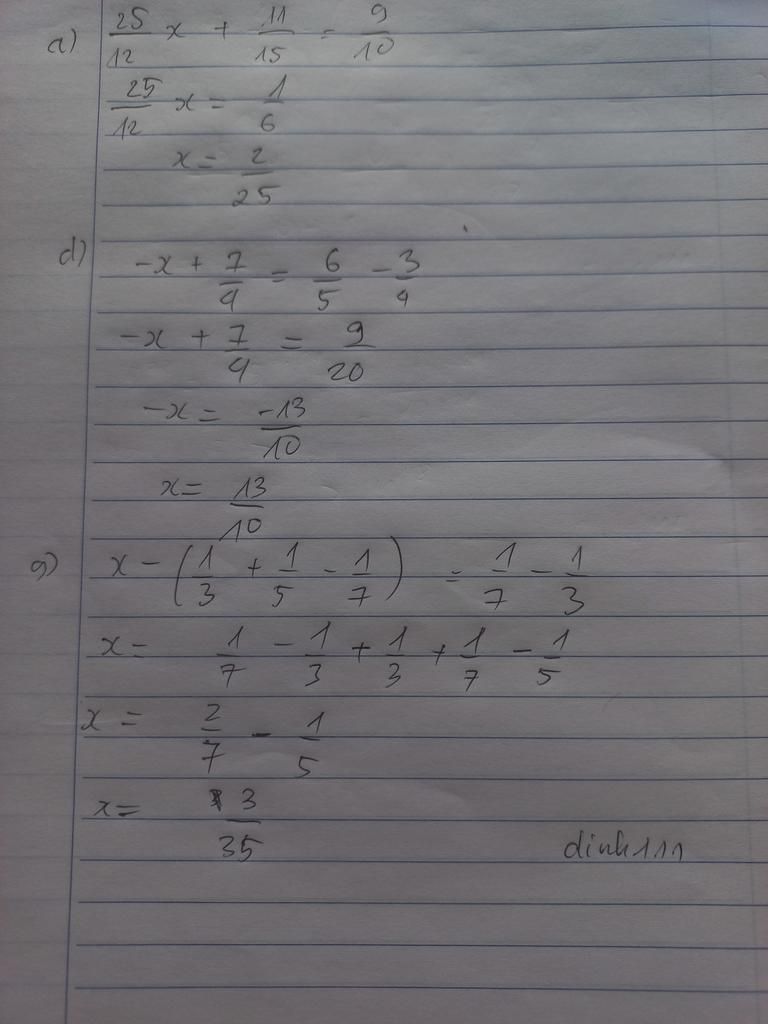 a) 25/12 x + 11/15 = 9/10
25/12 x = 1/6
x = 2/25
d) -x + 7/4 = 6/5 - 3/4
-x + 7/4 = 9/20
-x = -13/10
x = 13/10
g) x - (1/3 + 1/5 - 1/7) = 1/7 - 1/3
x = 1/7 - 1/3 + 1/3 + 1/7 - 1/5
x = 2/7 - 1/5
x = 3/35
dinh111